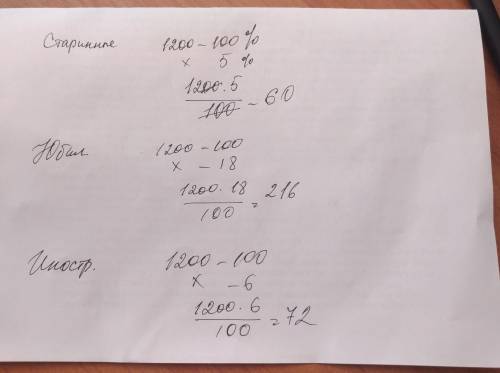 Старинные 1200 - 100%
x 5%
1200 · 5
100 - 60
Юбил. 1200 - 100
x - 18
1200 · 18
100 = 216
Иностр. 1200 - 100
x - 6
1200 · 6
100 = 72